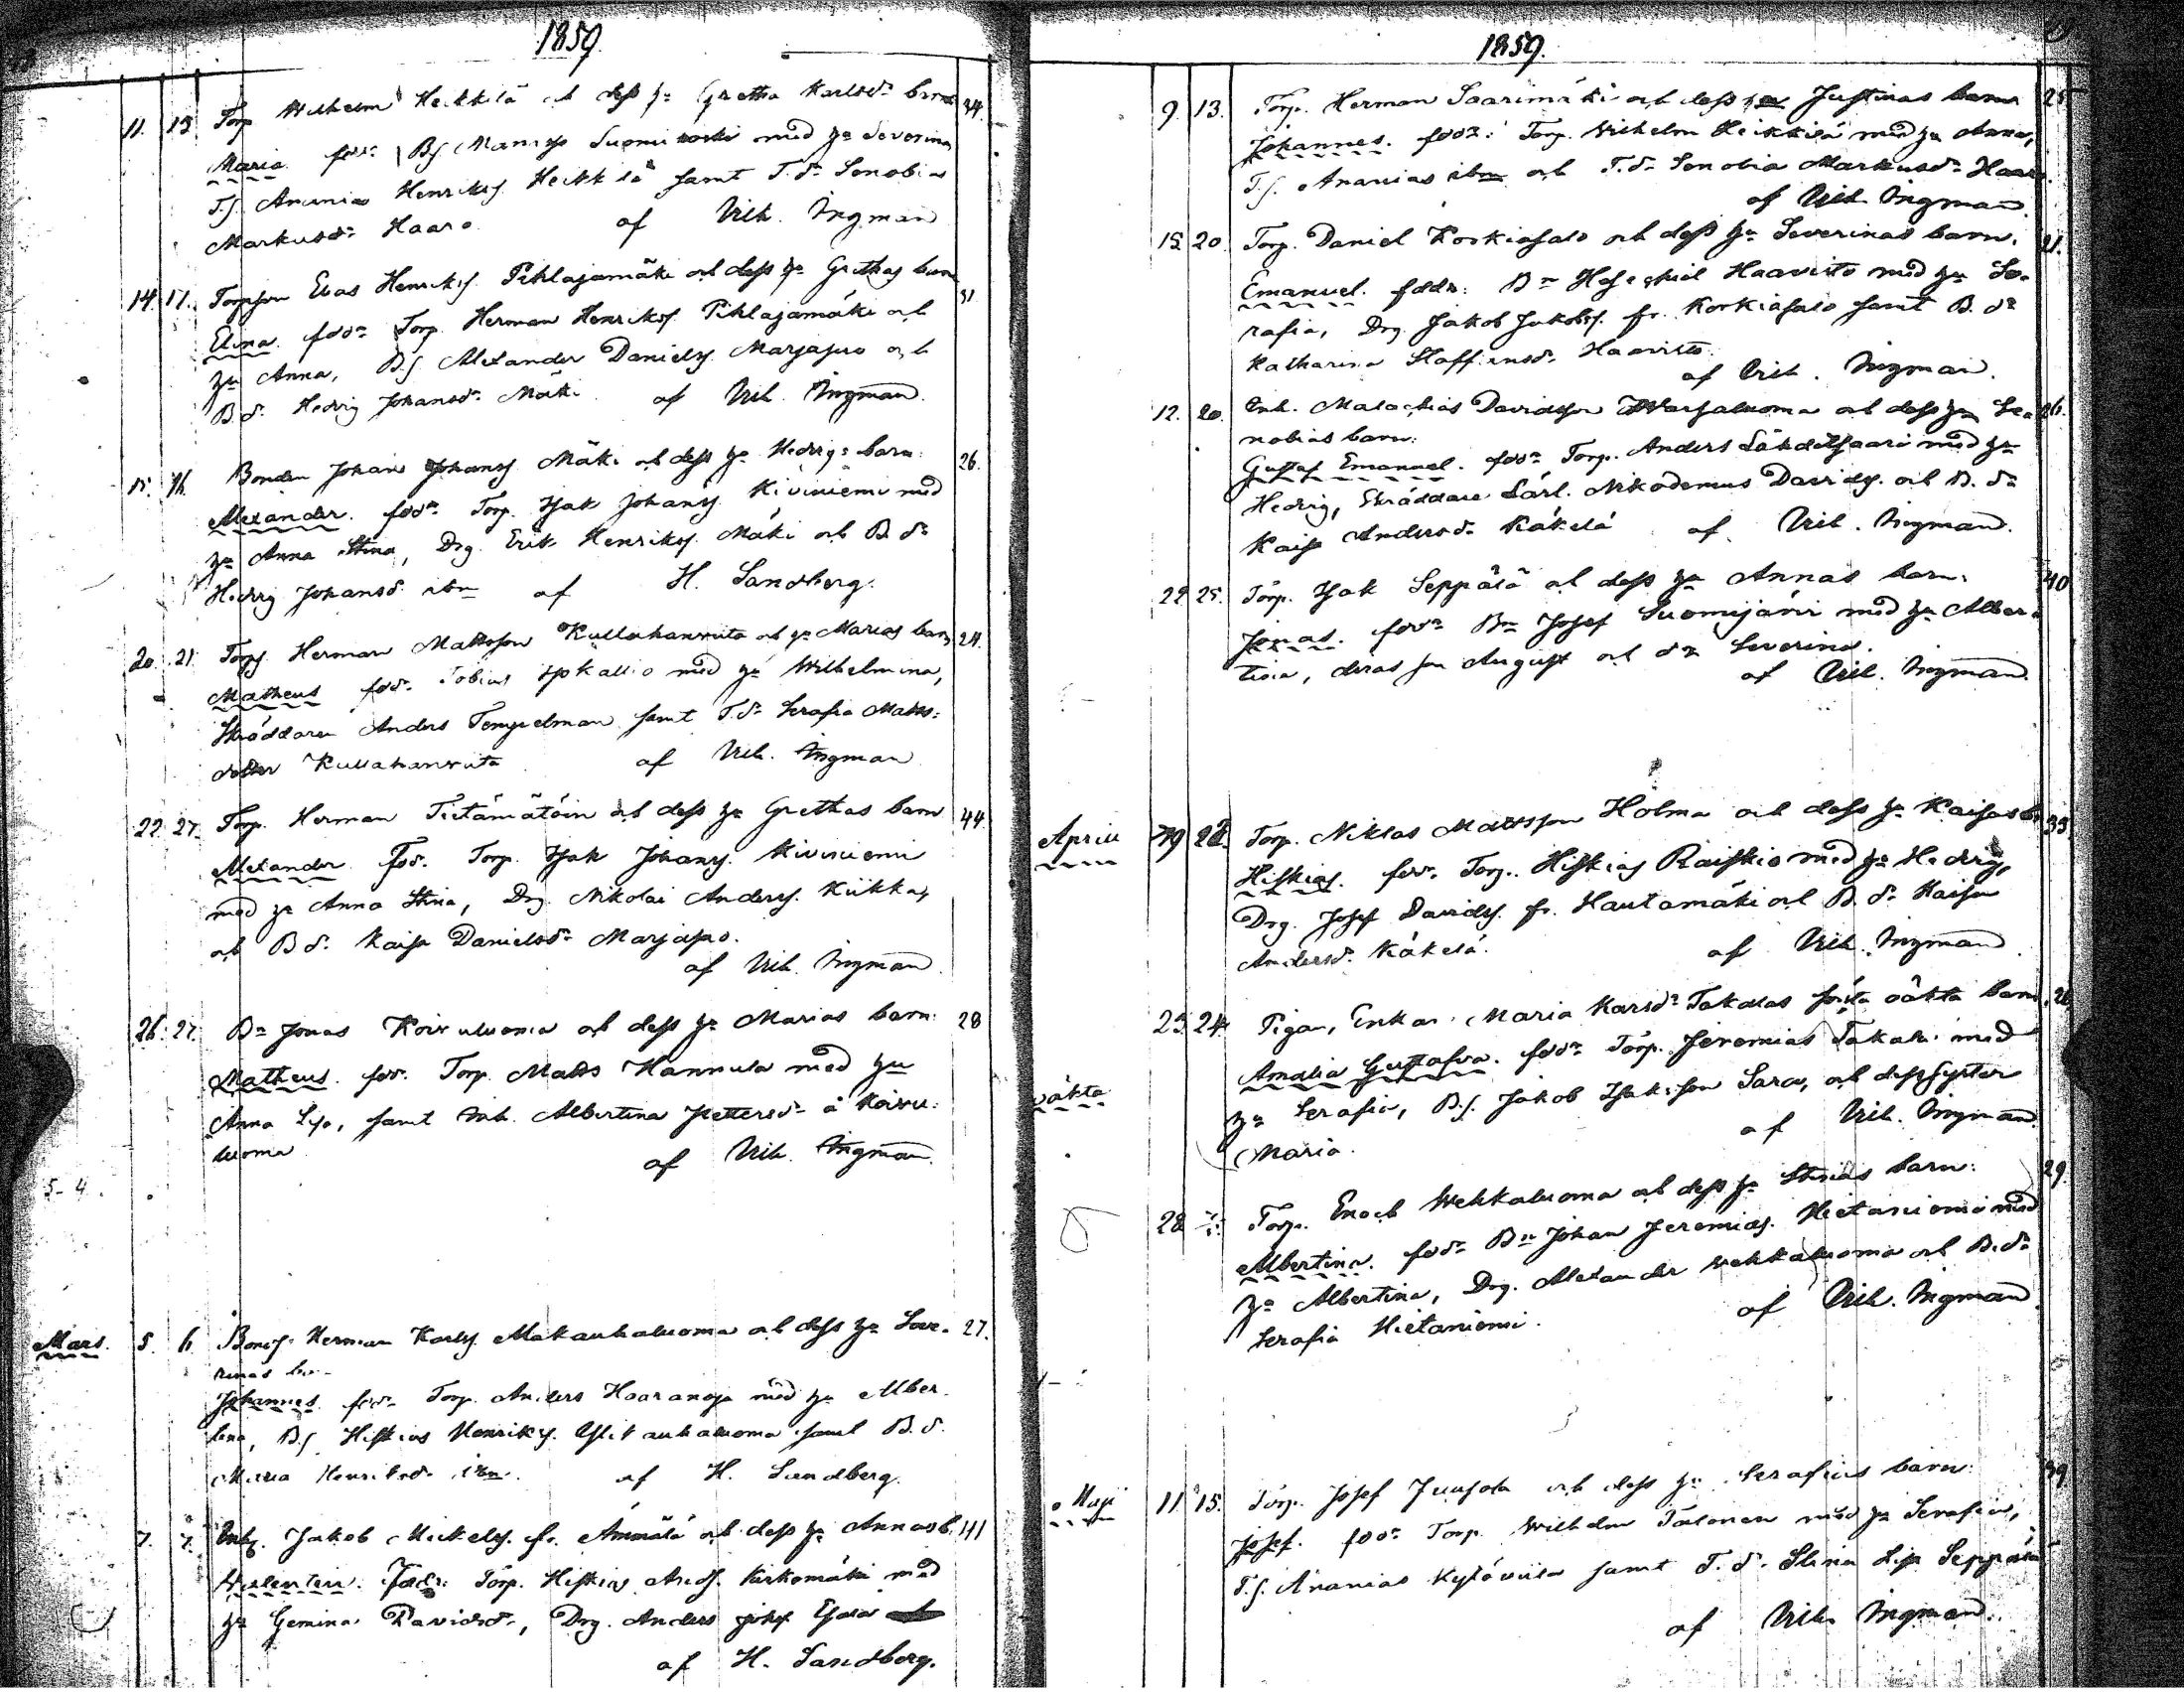 1859.
11. 13. Torp Wilhelm Heikkilä och dess hu Gretha Karlsdr barn 34.
Maria. faddr: Bs Mansson Suomikoski med hu Severina
T.s. Ananias Henrikss. Heikkilä samt T.dr Senobia
Markusdr Haaro. af Vilh. Ingman
14. 17. Torpson Elias Henrikss. Pihlajamäki och dess hu Grethas barn 31
Elina. faddr Torp. Herman Henrikss. Pihlajamäki och
hu Anna, B.s. Alexander Daniels. Marjapuo och
B.dr Hedvig Johansdr Mäki. af Vilh. Ingman.
15. 16. Bonden Johan Johanss. Mäki och dess hu Hedvigs barn: 26.
Alexander. faddr Torp. Isak Johanss. Kiviniemi med
hu Anna Stina, Drg. Erik Henrikss. Mäki och B.dr
Hedvig Johansd. ibm af H. Sandberg.
20. 21. Torps Herman Mattsson Kullahanvuita och hu Marias barn 24.
Matheus faddr Tobias Isokallio med hu Wilhelmina,
Skräddaren Anders Tempelman samt T.dr Serafia Matts-
dotter Kullahanvuita af Vilh. Ingman
22. 27. Torp. Herman Tietämätöin och dess hu Grethas barn 44.
Alexander. Fadr. Torp. Isak Johanss. Kiviniemi
med hu Anna Stina, Drg. Nikolai Anderss. Kiikka,
och B.dr. Kaisa Danielsdr Marjapuo.
af Vilh. Ingman.
26. 27. Bn Jonas Koivuluoma och dess hu Marias barn: 28
Matheus. fadr. Torp. Matts Hannula med hu
Anna Lisa, samt Inh. Albertina Pettersdr å Koivu-
luoma af Vilh. Ingman.
5-4.
Mars. 5. 6. Bonds. Herman Karls. Makauhaluoma och dess hu Seve- 27.
rinas ba-
Johannes. faddr Torp. Anders Haaranoja med hu Alber-
tina, B.s. Hiskias Henriks. Ylitauhaluoma samt B.d.
Maria Henriksdr ibm. af H. Sandberg.
7. 7. Inh. Jakob Mickels. fr. Ämmälä och dess hu Annas b. 41
Walentin. Faddr: Torp. Hiskias Ands. Kirkomäki med
hu Gemina Davidsdr., Drg. Anders
af H. Sandberg.
1859.
9. 13. Torp. Herman Saarimäki och dess hu Justinas barn 25
Johannes. faddr: Torp. Wilhelm Heikkilä med hu Anna,
T.s. Ananias ibm och T.dr Senobia Markusdr Haaro.
af Vilh. Ingman.
15. 20. Torp. Daniel Korkiasalo och dess hu Severinas barn. 21.
Emanuel. faddr: Bn Hesekiel Haavisto med hu Se-
rafia, Drg. Jakob Jakobs. fr. Korkiasalo samt B.dr
Katharina Staffansdr. Haavisto.
af Vilh. Ingman.
12. 20. Inh. Malachias Davidsson Warsaluoma och dess hu Se- 26.
nobias barn:
Gustaf Emanuel. faddr Torp. Anders Lähdetsaari med hu
Hedvig, Skräddare Lärl. Nikodemus Davids. och B.dr
Kaisa Andersdr Käkelä af Vilh. Ingman.
22. 25. Torp. Isak Seppälä och dess hu Annas barn: 40
Jonas. faddr Bn Josef Suomijärvi med hu Alber-
tina, deras son August och dr Severina.
af Vilh. Ingman.
April 19 22. Torp. Niklas Mattsson Holma och dess hu Kaisas b. 33
Hiskias. fadr. Torp. Hiskias Raiskio med hu Hedvig,
Drg. Josef Davids. fr. Hautamäki och B.dr Kaisa
Andersd. Käkelä. af Vilh. Ingman
oäkta 23. 24. Pigan, Enkan Maria Karsdr Takalas första oäkta barn. 26
Amalia Gustafva. faddr Torp. Jeremias Takala med
hu Serafia, B.s. Jakob Isaksson Sara, och dess syster
Maria. af Vilh. Ingman.
28. Torp. Enoch Wehkaluoma och dess hu Stinas barn: 29.
Albertina. faddr Bn Johan Jeremias. Hietaniemi med
hu Albertina, Drg. Alexander Wehkaluoma och B.dr
Serafia Hietaniemi. af Vilh. Ingman
Maji 11. 15. Torp. Josef Juusola och dess hu Serafias barn: 39
Josef. faddr Torp. Wilhelm Talonen med hu Serafia,
T.s. Ananias Kytöviita samt T.d. Stina Lisa Seppälä
af Vilh. Ingman.